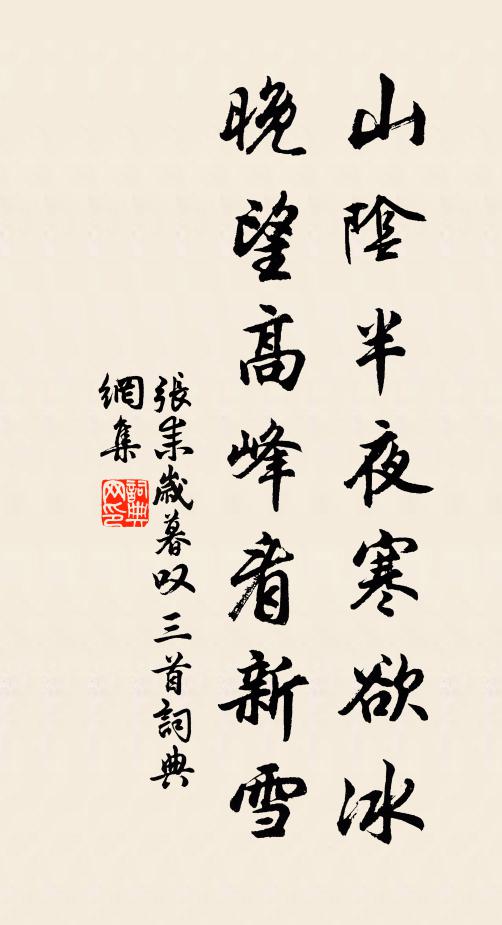 山陰半夜寒欲冰
晚望高峰看新雪
張耒歲暮叹三首詞典
網集
詞典網印